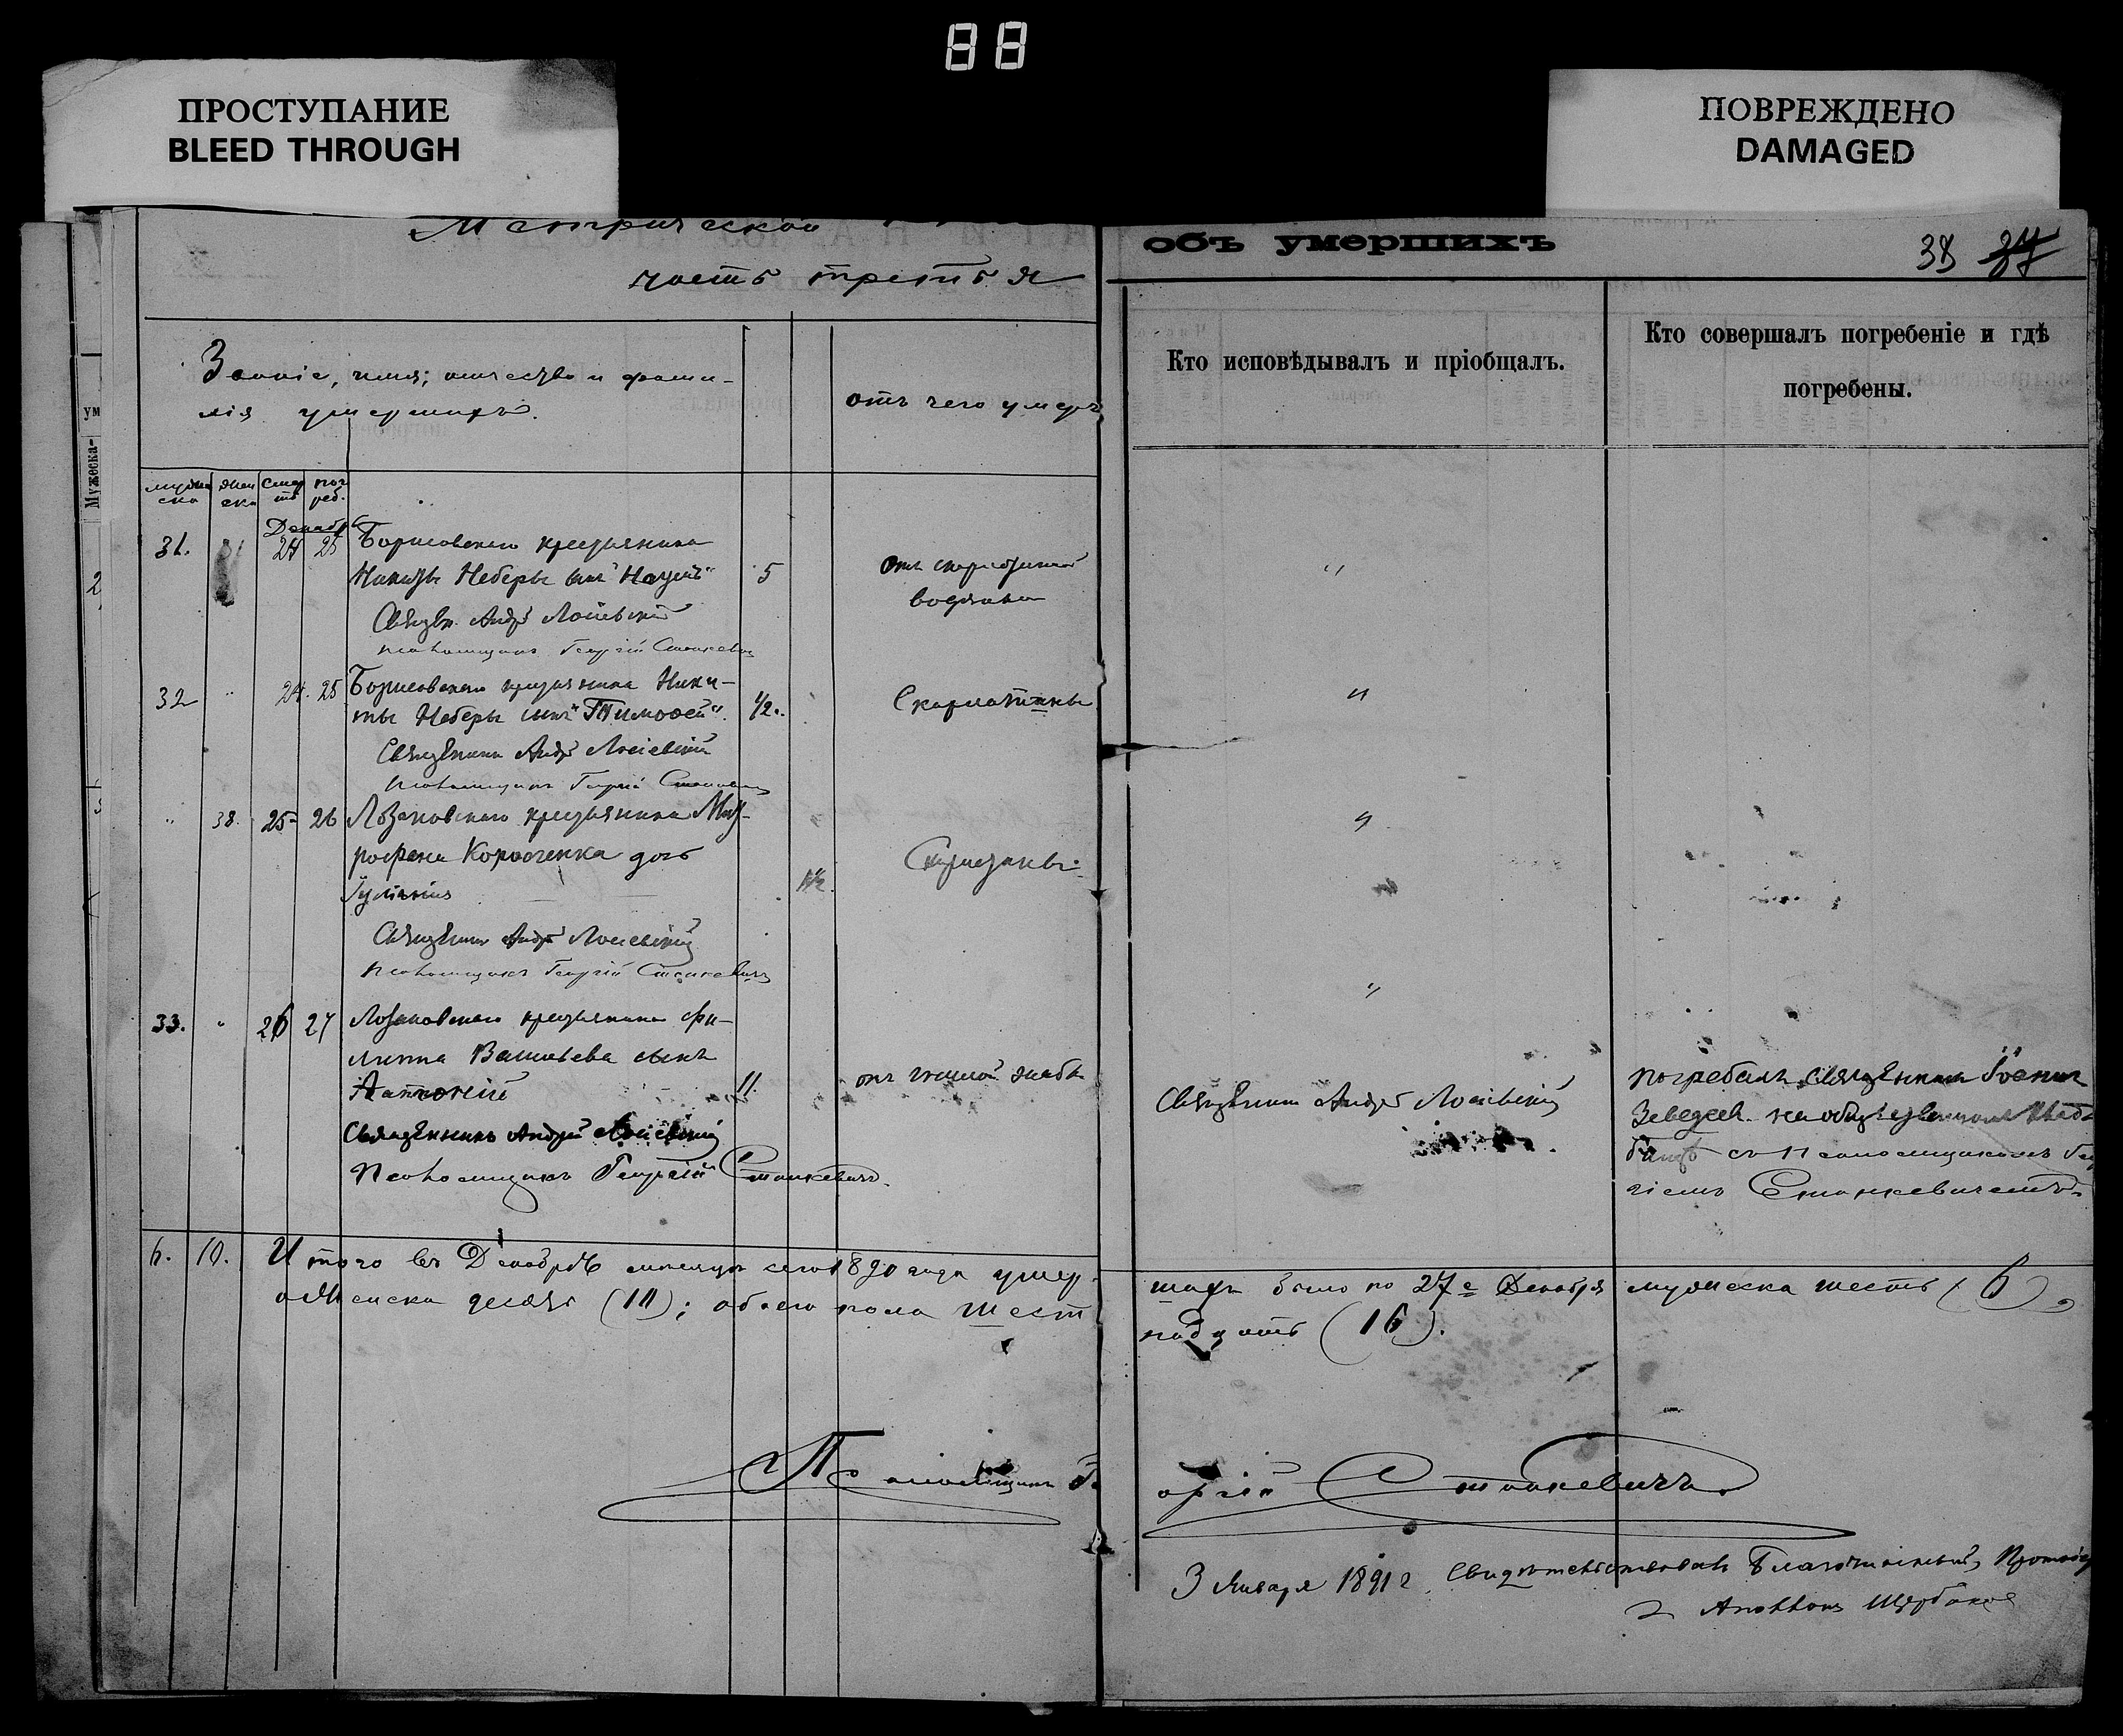 88
ПРОСТУПАНИЕ
BLEED THROUGH
ПОВРЕЖДЕНО
DAMAGED
Метрической
часть третья
объ умершихъ
38 37
Званіе, имя, отчество и фами-
лія умершихъ.
отъ чего умеръ
Кто исповѣдывалъ и пріобщалъ.
Кто совершалъ погребеніе и гдѣ
погребены.
ум
Мужеска-
муже
ска
жен
ска
смер
ти
пог
реб.
Декабрь
31. 24 25 Борисовскаго крестьянина
Никиты Неберы сынъ "Наумъ" 5 отъ скарлатинной
водянки "
Священ. Андрей Лосіевскій
Псаломщикъ Георгій Станкевич
32 " 24. 25 Борисовскаго крестьянина Ники-
ты Неберы сынъ "Тимофей". 1/2. Скарлатины "
Священникъ Андрей Лосіевскій
Псаломщикъ Георгій Станкевич
" 38. 25 26 Лозановскаго крестьянина Мит-
рофана дочь
Іуліанія 1 1/2. "
Священникъ Андрей Лосіевскій
Псаломщикъ Георгій Станкевичъ
33. " 26 27 Лозановскаго крестьянина Фи-
липпа Васильева сынъ
Антоній 11. отъ жабы "
Священникъ Андрей Лосіевскій
Псаломщикъ Георгій Станкевичъ.
Священникъ Андрей Лосіевскій
погребалъ священникъ Іоаннъ
Зеведеев на клад-
бищѣ съ псаломщикомъ Ге
гіемъ Станкевичемъ.
6. 10. Итого въ Декабрѣ мѣсяцѣ сего 1890 года умер-
шихъ было по 27е Декабря мужеска шесть (6),
а женска десять (10); обоего пола шест
надцать (16).
Псаломщикъ Ге
оргій Станкевичъ.
3 Января 1891 г. Свидѣтельствовалъ Благочинный, Протоіер
Щербаков